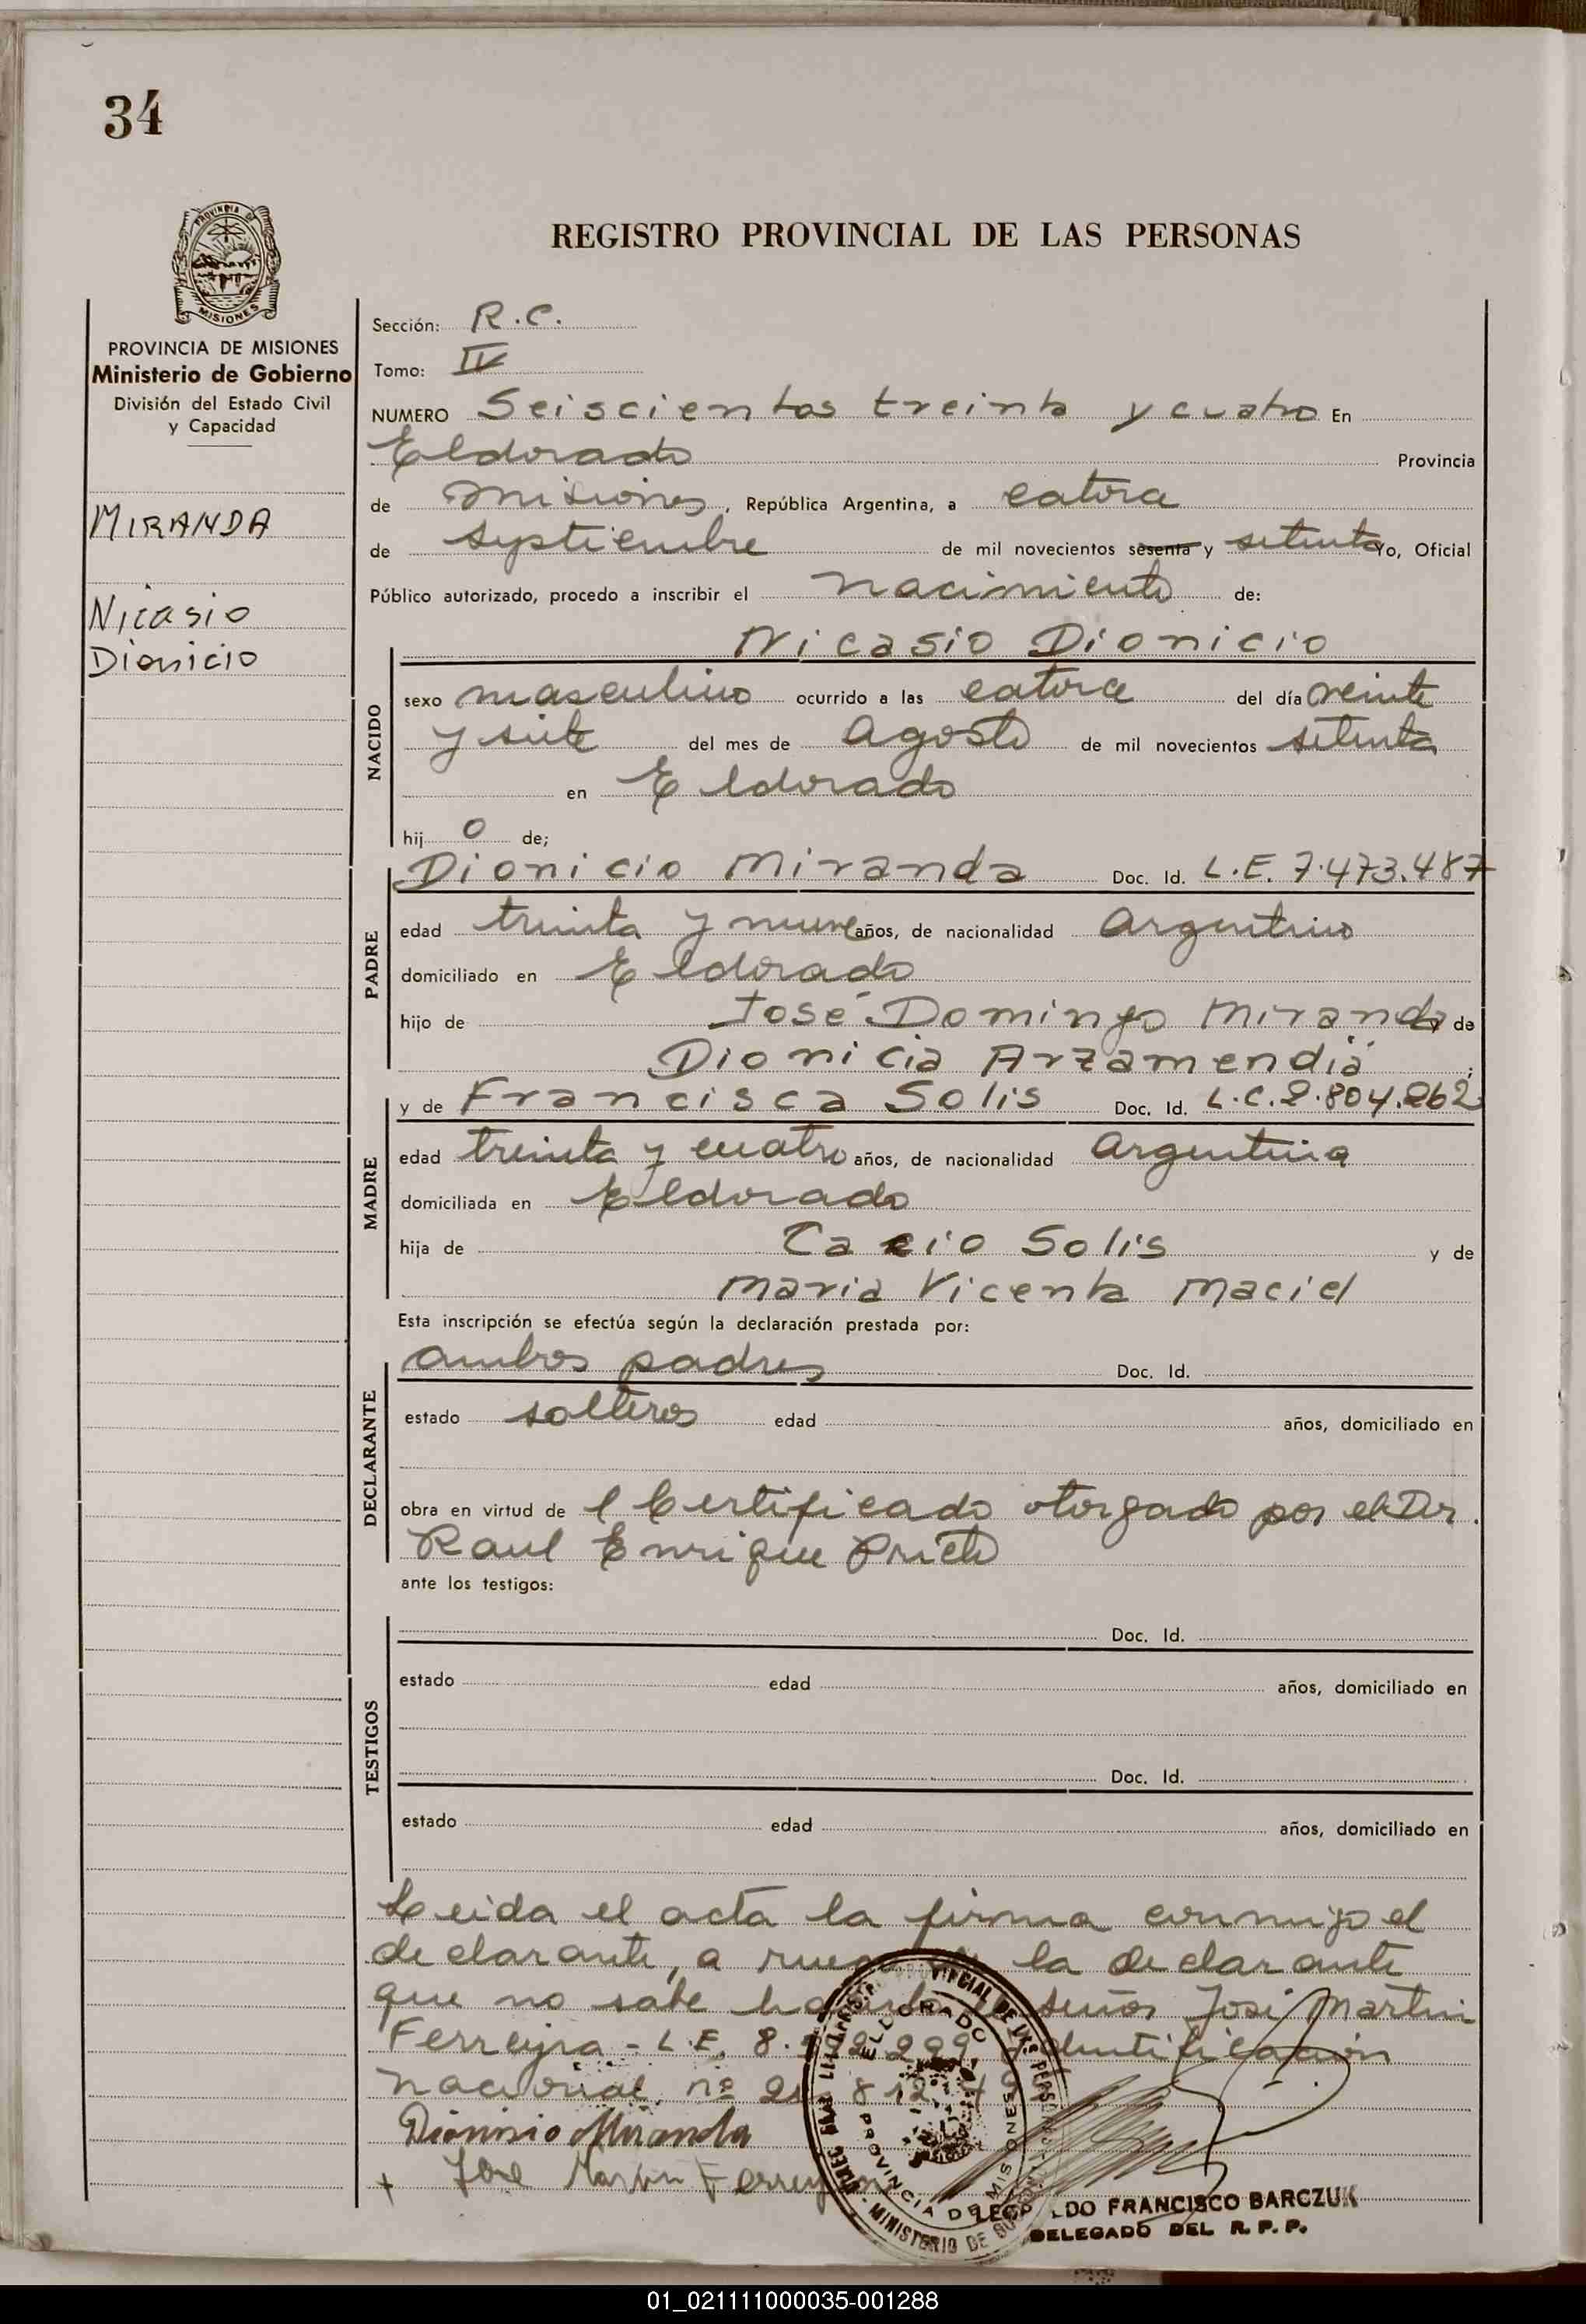 34
PROVINCIA DE
MISIONES
PROVINCIA DE MISIONES
Ministerio de Gobierno
División del Estado Civil
y Capacidad
MIRANDA
Nicasio
Dionicio
REGISTRO PROVINCIAL DE LAS PERSONAS
Sección: R.C.
Tomo: IV
NUMERO Seiscientos treinta y cuatro En
Eldorado Provincia
de Misiones, República Argentina, a catorce
de septiembre de mil novecientos sesenta y setenta Yo, Oficial
Público autorizado, procedo a inscribir el nacimiento de:
Nicasio Dionicio
NACIDO
sexo masculino ocurrido a las catorce del día veinte
y siete del mes de Agosto de mil novecientos setenta
en Eldorado
hij o de;
PADRE
Dionicio Miranda Doc. Id. L.E. 7.473.487
edad treinta y nueve años, de nacionalidad Argentino
domiciliado en Eldorado
hijo de José Domingo Miranda y de
Dionicia Arzamendia;
MADRE
y de Francisca Solis Doc. Id. L.C. 2.804.262
edad treinta y cuatro años, de nacionalidad Argentina
domiciliada en Eldorado
hija de Solis y de
Maria Vicenta Maciel
Esta inscripción se efectúa según la declaración prestada por:
DECLARANTE
ambos padres Doc. Id.
estado solteros edad años, domiciliado en
obra en virtud de l Certificado otorgado por el Dr.
Raul Enrique Prieto
ante los testigos:
TESTIGOS
Doc. Id.
estado edad años, domiciliado en
Doc. Id.
estado edad años, domiciliado en
Leida el acta la firma conmigo el
declarante, a la declarante
que no sabe señor José Martin
Ferreyra - L.E. 8. 299 identificación
nacional nº
Dionisio Miranda
+ José Martin Ferreyra
ELDORADO
PROVINCIA DE MISIONES
MINISTERIO DE
LEOP LDO FRANCISCO BARCZUK
DELEGADO DEL R. P. P.
01_021111000035-001288